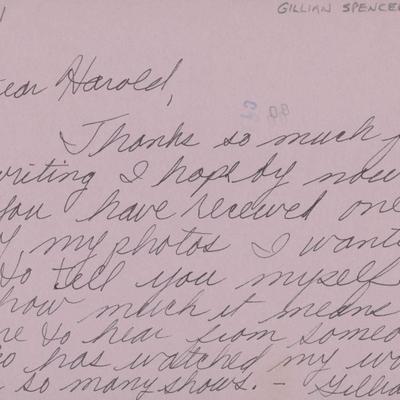 GILLIAN SPENCER
ear Harold,
Thanks so much f
writing I hope by now
you have received one
of my photos I wante
to tell you myself
how much it means
me to hear from someo
o has watched my wo
so many shows. - Gillia